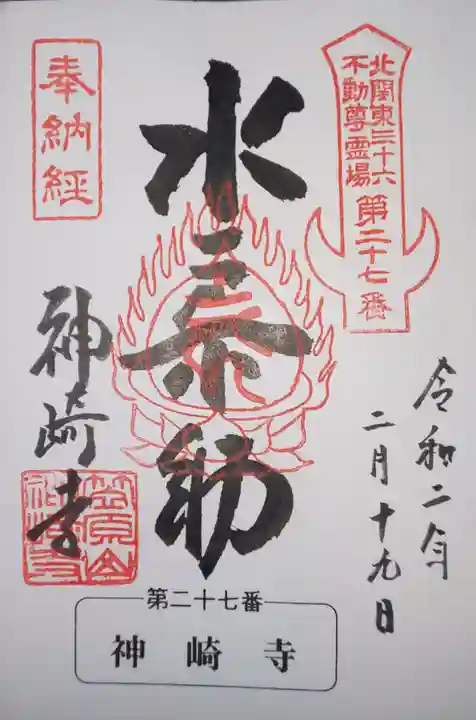 北関東三十六
不動尊霊場
第二十七番
令和二年
二月十九日
水不動
奉納経
神崎寺
笠原山
神崎寺
第二十七番
神崎寺